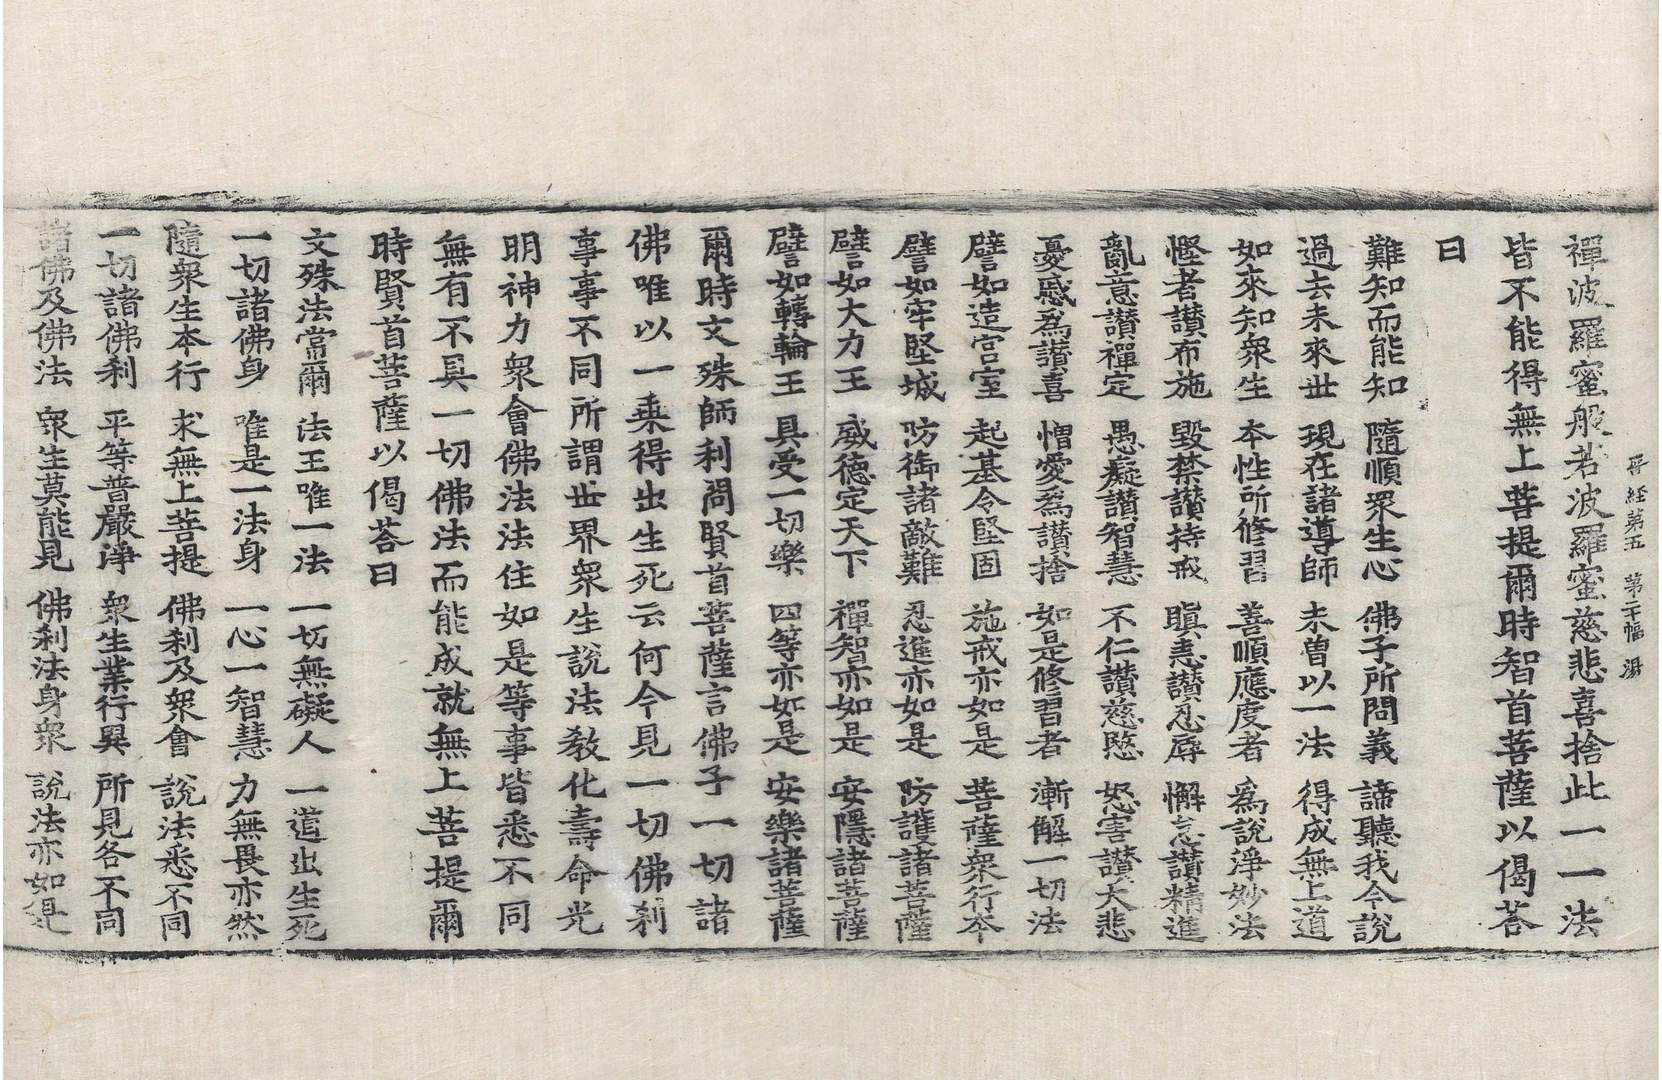 晉經第五　第二十幅　湯
禪波羅蜜般若波羅蜜慈悲喜捨此一一法
皆不能得無上菩提爾時智首菩薩以偈荅
曰
難知而能知　隨順衆生心　佛子所問義　諦聽我今說
過去未來世　現在諸導師　未曽以一法　得成無上道
如來知衆生　本性所修習　善順應度者　爲說淨妙法
慳者讃布施　毀禁讃持戒　瞋恚讃忍辱　懈怠讃精進
亂意讃禪定　愚癡讃智慧　不仁讃慈愍　怒害讃大悲
憂慼爲讃喜　憎愛爲讃捨　如是修習者　漸解一切法
譬如造宫室　起基令堅固　施戒亦如是　菩薩衆行本
譬如牢堅城　防御諸敵難　忍進亦如是　防護諸菩薩
譬如大力王　威德定天下　禪智亦如是　安隱諸菩薩
譬如轉輪王　具受一切樂　四等亦如是　安樂諸菩薩
爾時文殊師利問賢首菩薩言佛子一切諸
佛唯以一乗得出生死云何今見一切佛刹
事事不同所謂世界衆生說法教化壽命光
明神力衆會佛法法住如是等事皆悉不同
無有不具一切佛法而能成就無上菩提爾
時賢首菩薩以偈荅曰
文殊法常爾　法王唯一法　一切無礙人　一道出生死
一切諸佛身　唯是一法身　一心一智慧　力無畏亦然
隨衆生本行　求無上菩提　佛刹及衆會　說法悉不同
一切諸佛刹　平等普嚴淨　衆生業行異　所見各不同
諸佛及佛法　衆生莫能見　佛刹法身衆　說法亦如是